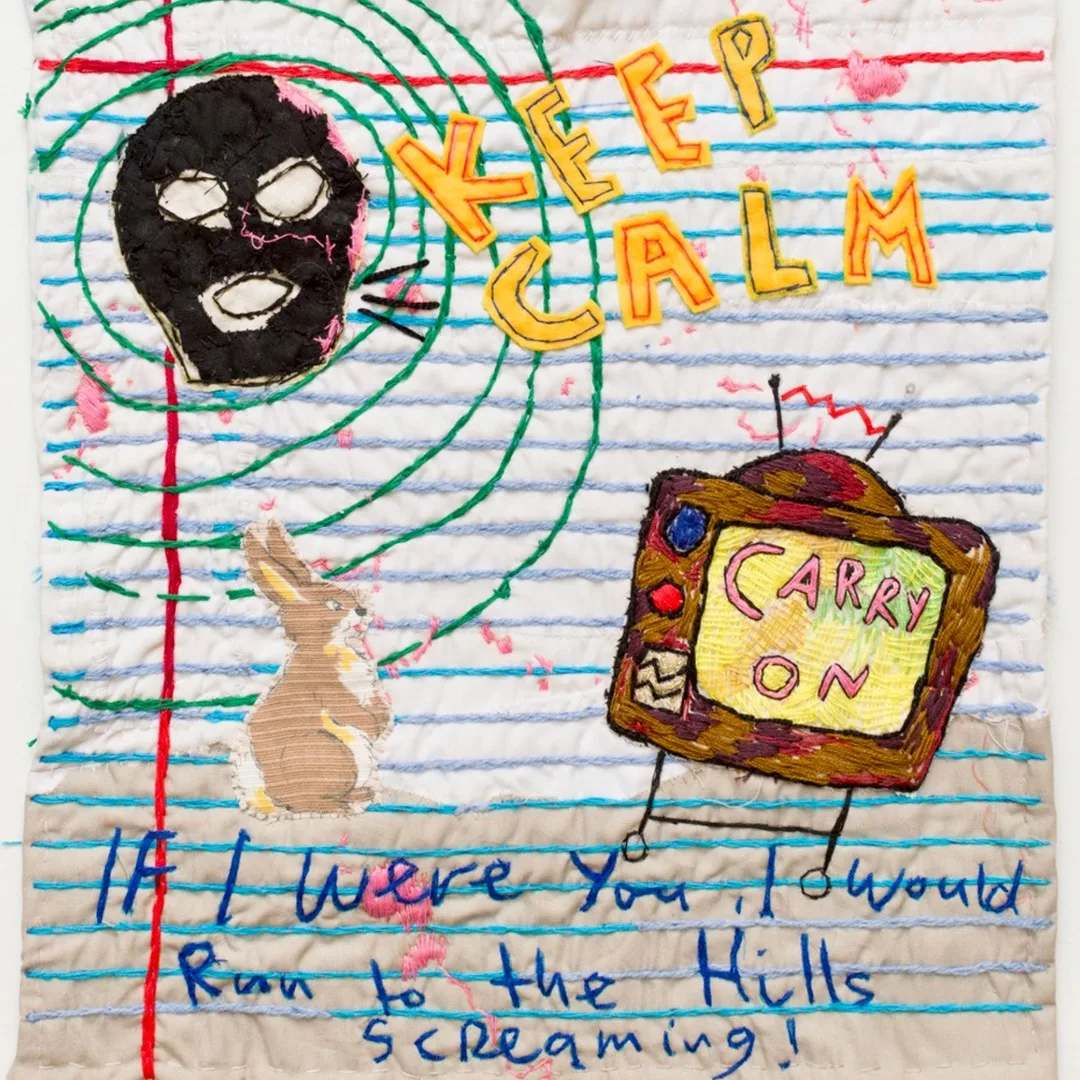 KEEP
CALM
CARRY
ON
IF I Were You, I Would
Run to the Hills
Screaming!